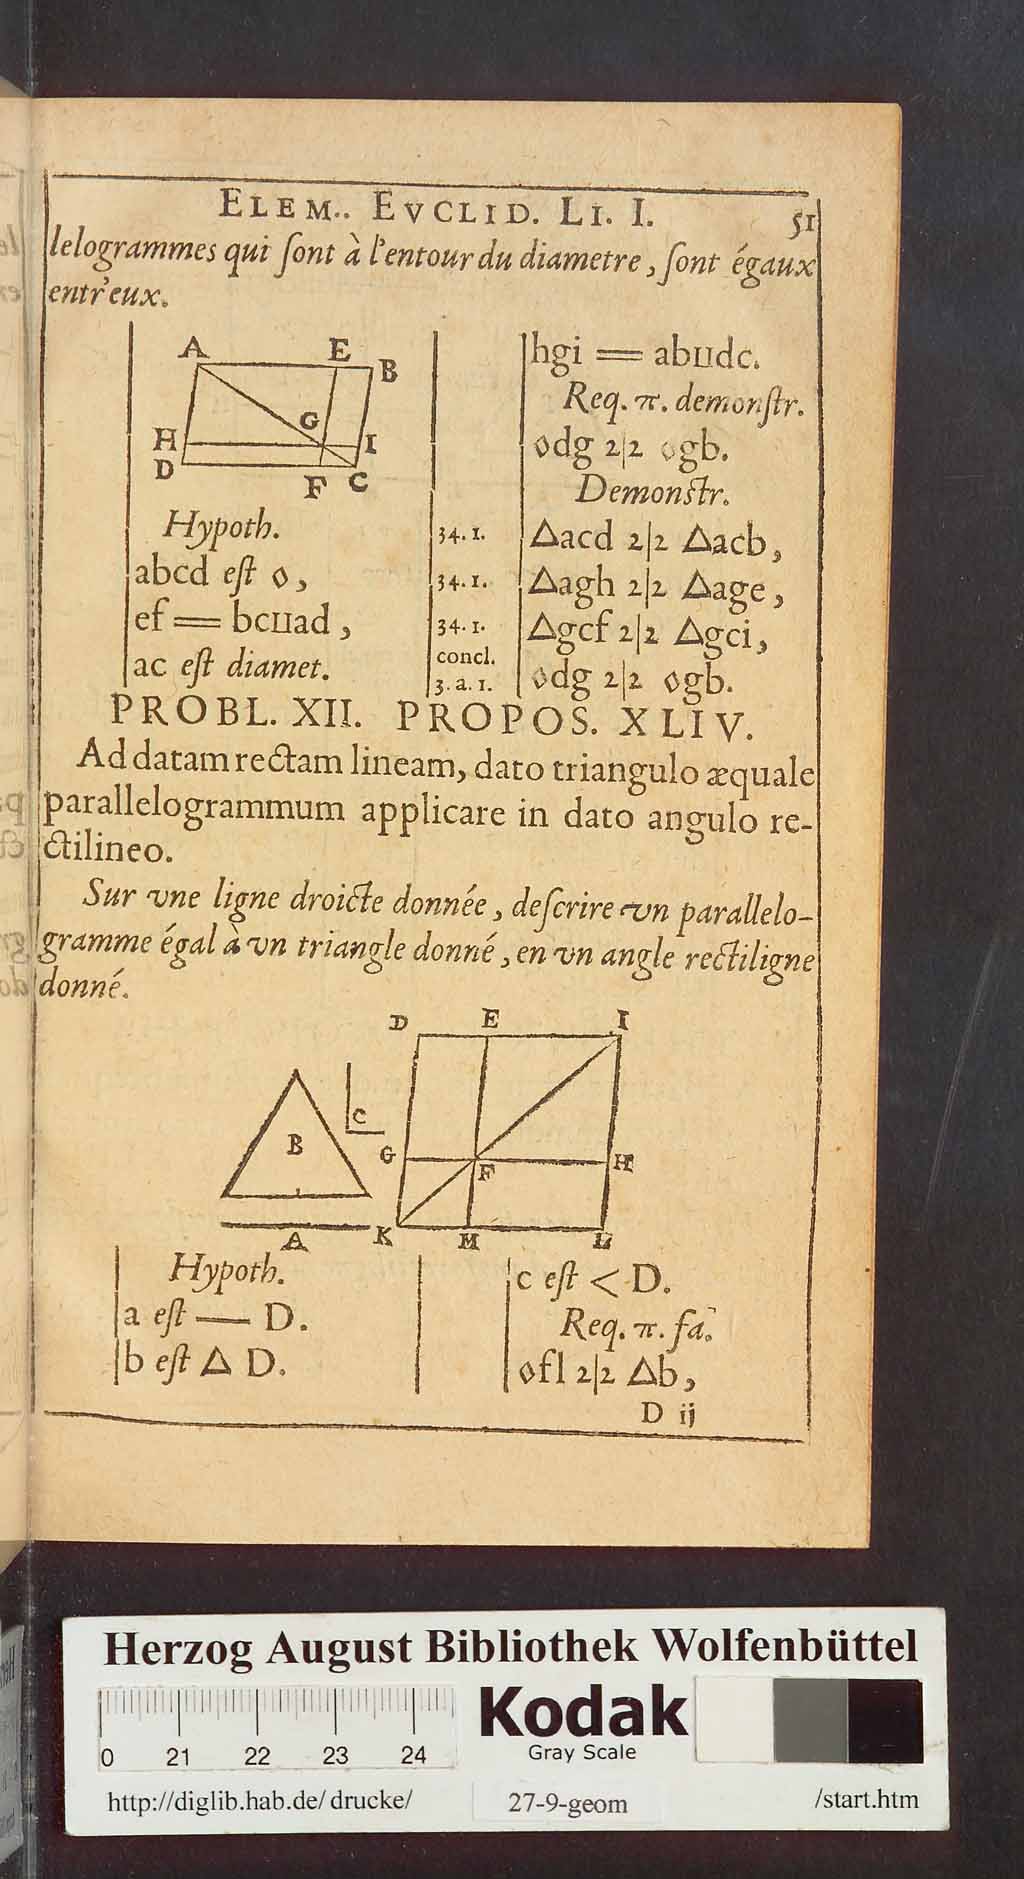 ELEM. EVCLID. LI. I. 51
lelogrammes qui ſont à l'entour du diametre, ſont égaux
entr'eux.
A E B
G
H I
D F C
Hypoth.
abcd eſt ◊,
ef = bcııad,
ac eſt diamet.
hgi = abııdc.
Req. π. demonſtr.
◊dg 2|2 ◊gb.
Demonſtr.
34. 1. Δacd 2|2 Δacb,
34. 1. Δagh 2|2 Δage,
34. 1. Δgcf 2|2 Δgci,
concl.
3. a. 1. ◊dg 2|2 ◊gb.
PROBL. XII. PROPOS. XLIV.
Ad datam rectam lineam, dato triangulo æquale
parallelogrammum applicare in dato angulo re-
ctilineo.
Sur vne ligne droicte donnée, deſcrire vn parallelo-
gramme égal à vn triangle donné, en vn angle rectiligne
donné.
D E I
C
B
G F H
A K M L
Hypoth.
a eſt — D.
b eſt Δ D.
c eſt < D.
Req. π. fa.
◊fl 2|2 Δb,
D ij
Herzog August Bibliothek Wolfenbüttel
Kodak
Gray Scale
0 21 22 23 24
http://diglib.hab.de/ drucke/ 27-9-geom /start.htm